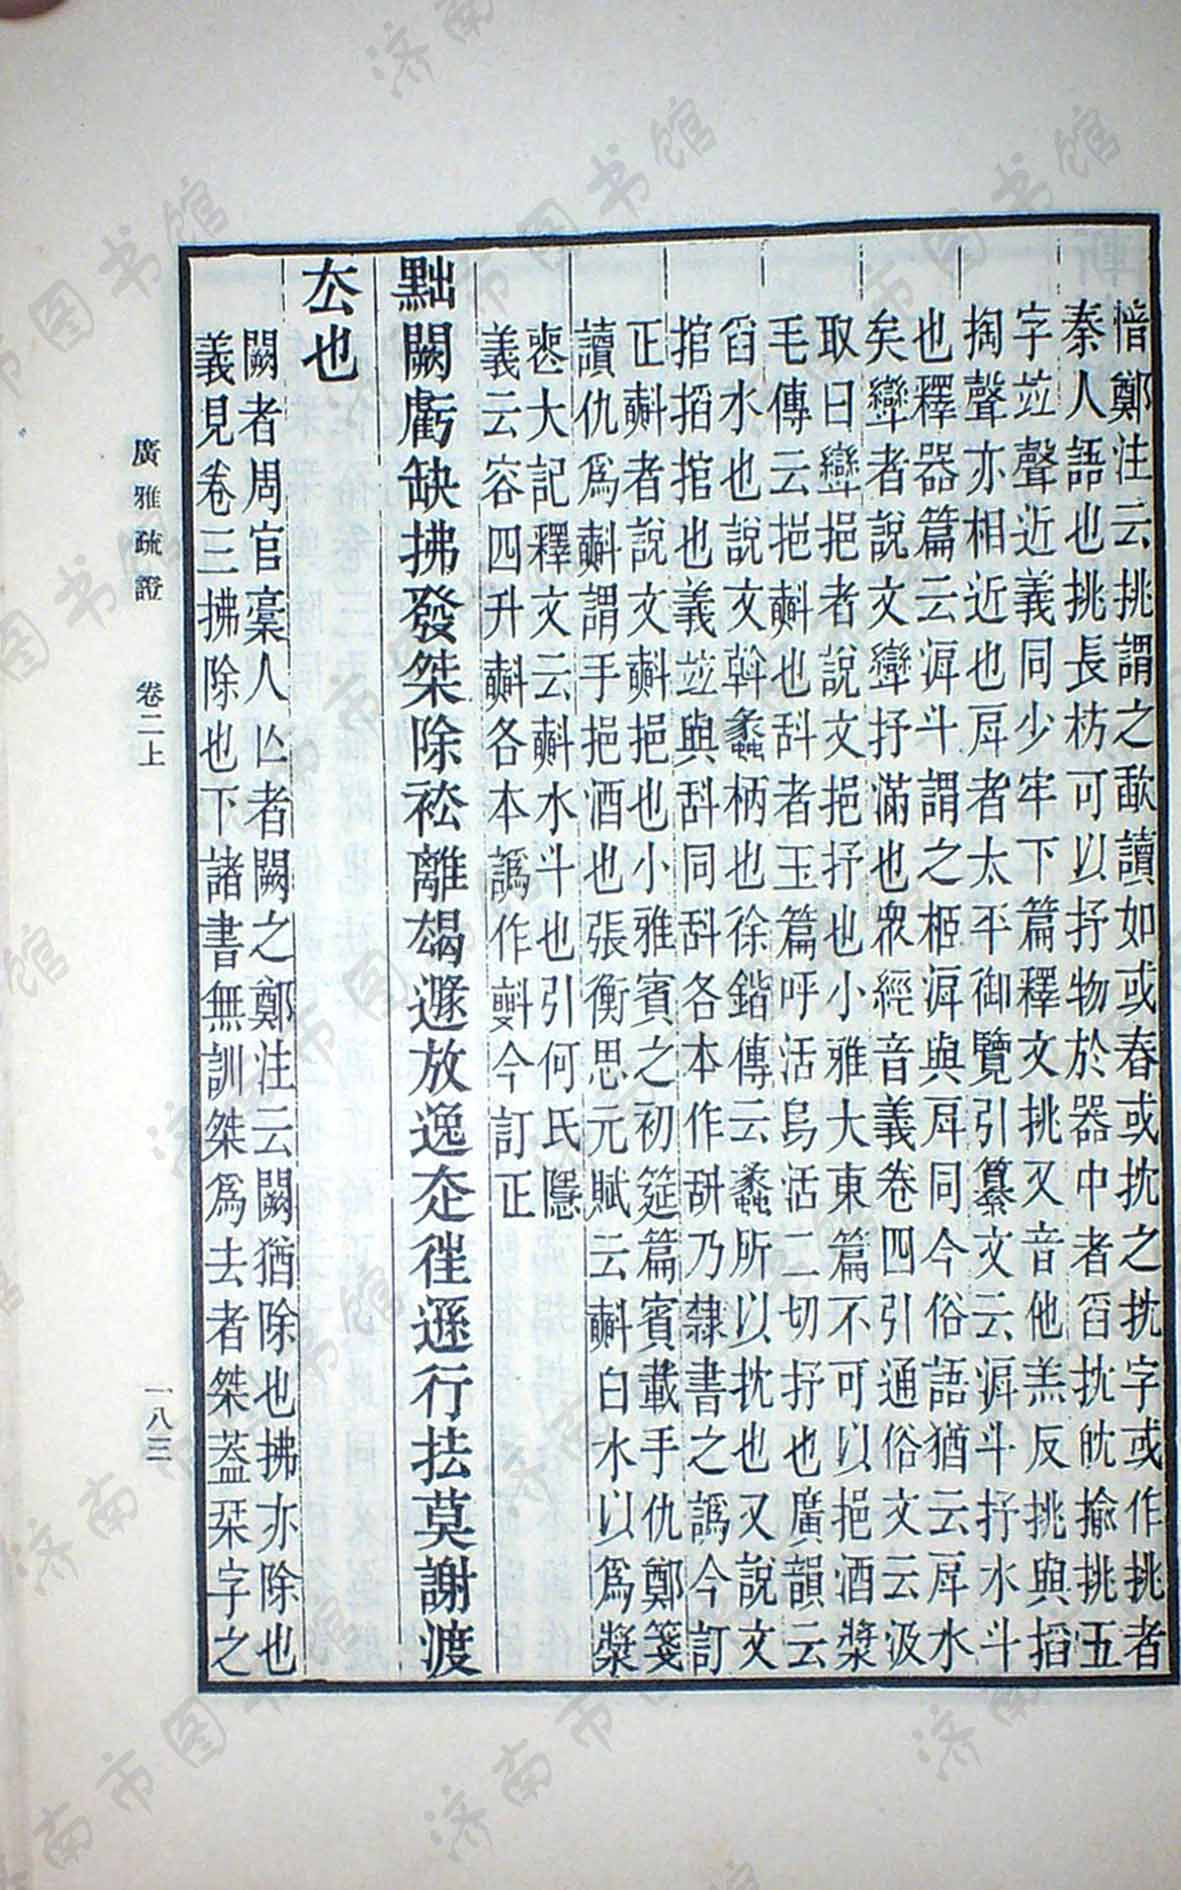 愔鄭注云挑謂之歃讀如或舂或抌之抌字或作挑者
秦人語也挑長枋可以抒物於器中者舀抌㧈揄挑五
字竝聲近義同少牢下篇釋文挑又音他羔反挑與搯
掏聲亦相近也㞒者太平御覽引纂文云㵩斗抒水斗
也釋器篇云㵩斗謂之㭱㵩與㞒同今俗語猶云㞒水
矣㪻者說文㪻抒滿也眾經音義卷四引通俗文云汲
取曰㪻挹者說文挹抒也小雅大東篇不可以挹酒漿
毛傳云挹㪺也㪿者玉篇呼活烏活二切抒也廣韻云
舀水也說文斡蠡柄也徐鍇傳云蠡所以抌也又說文
捾搯捾也義竝與㪿同㪿各本作硏乃隸書之譌今訂
正㪺者說文㪺挹也小雅賓之初筵篇賓載手仇鄭箋
讀仇爲㪺謂手挹酒也張衡思元賦云㪺白水以爲漿
喪大記釋文云㪺水斗也引何氏隱
義云容四升㪺各本譌作㪺今訂正
黜闕虧缺拂發桀除袪離朅遂放逸𡗜往遜行抾莫謝渡
去也
闕者周官槀人亾者闕之鄭注云闕猶除也拂亦除也
義見卷三拂除也下諸書無訓桀爲去者桀葢栞字之
廣雅疏證 卷二上
一八三
济南市图书馆